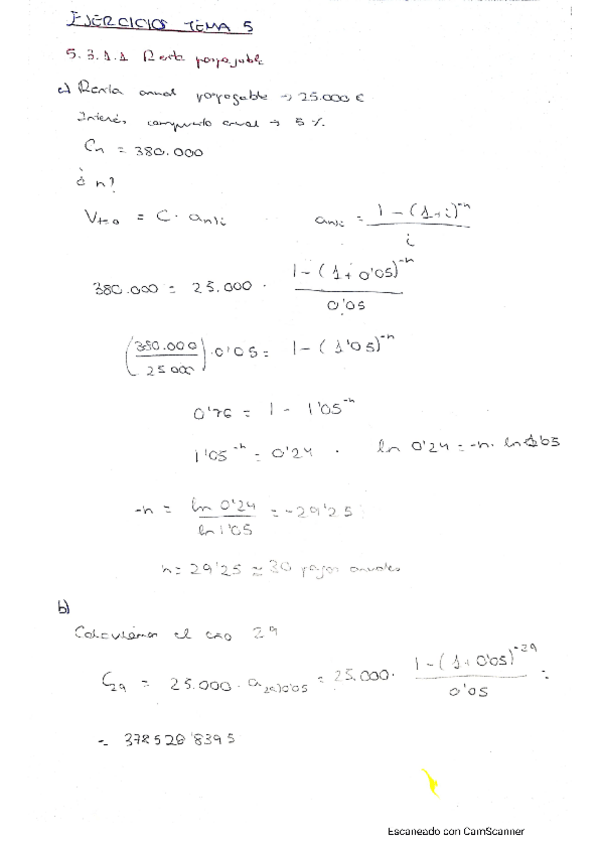 EJERCICIOS TEMA 5
5.3.1.1 Renta pospagable
a) Renta anual pospagable → 25.000 €
Interés compuesto anual → 5 %
Cn = 380.000
¿ n?
Vt=0 = C · an⌉i     an⌉i = 1 - (1+i)^-n / i
380.000 = 25.000 · 1 - (1 + 0'05)^-n / 0'05
(380.000 / 25 000) · 0'05 = 1 - (1'05)^-n
0'76 = 1 - 1'05^-n
1'05^-n = 0'24 · ln 0'24 = -n · ln 1'05
-n = ln 0'24 / ln 1'05 = -29'25
n = 29'25 ≈ 30 pagos anuales
b)
Calculamos el año 29
C29 = 25.000 · a29⌉0'05 = 25.000 · 1 - (1 + 0'05)^-29 / 0'05 =
= 378528'8395
Escaneado con CamScanner